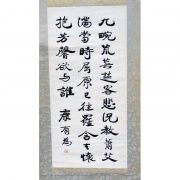 九畹荒蕪楚客悲況教蕭艾
滿當時屈原已往羅含去懷
抱芳馨欲與誰 康有為